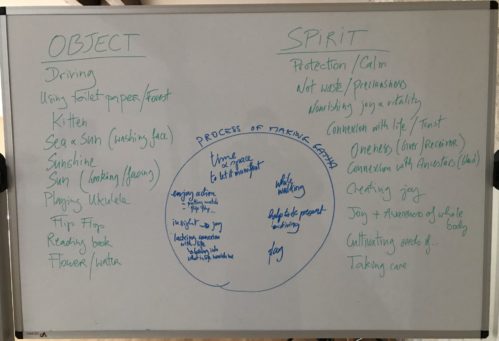 OBJECT
Driving
Using toilet paper/Forest
Kitten
Sea & Sun (washing face)
Sunshine
Sun (looking/facing)
Playing Ukulele
Flip Flop
Reading book
Flower/water
SPIRIT
Protection/Calm
Not waste/Preciousness
Nourishing joy & vitality
Connexion with life/Trust
Oneness (Giver/Receiver)
Connexion with Ancestors
Creating joy
Joy + Awareness of whole body
Cultivating seeds of...
Taking care
PROCESS OF MAKING GATHA
time
& space
to let it manifest
enjoying action
insight → joy
lacking connexion
with life
while
walking
help to be present
in driving
play